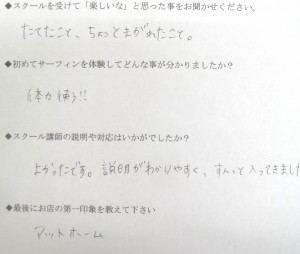 ◆スクールを受けて「楽しいな」と思った事をお聞かせください。
たてたこと、ちょっとまがれたこと。
◆初めてサーフィンを体験してどんな事が分かりましたか？
体力使う!!
◆スクール講師の説明や対応はいかがでしたか？
よかったです。説明がわかりやすく、すんっと入ってきました
◆最後にお店の第一印象を教えて下さい
アットホーム